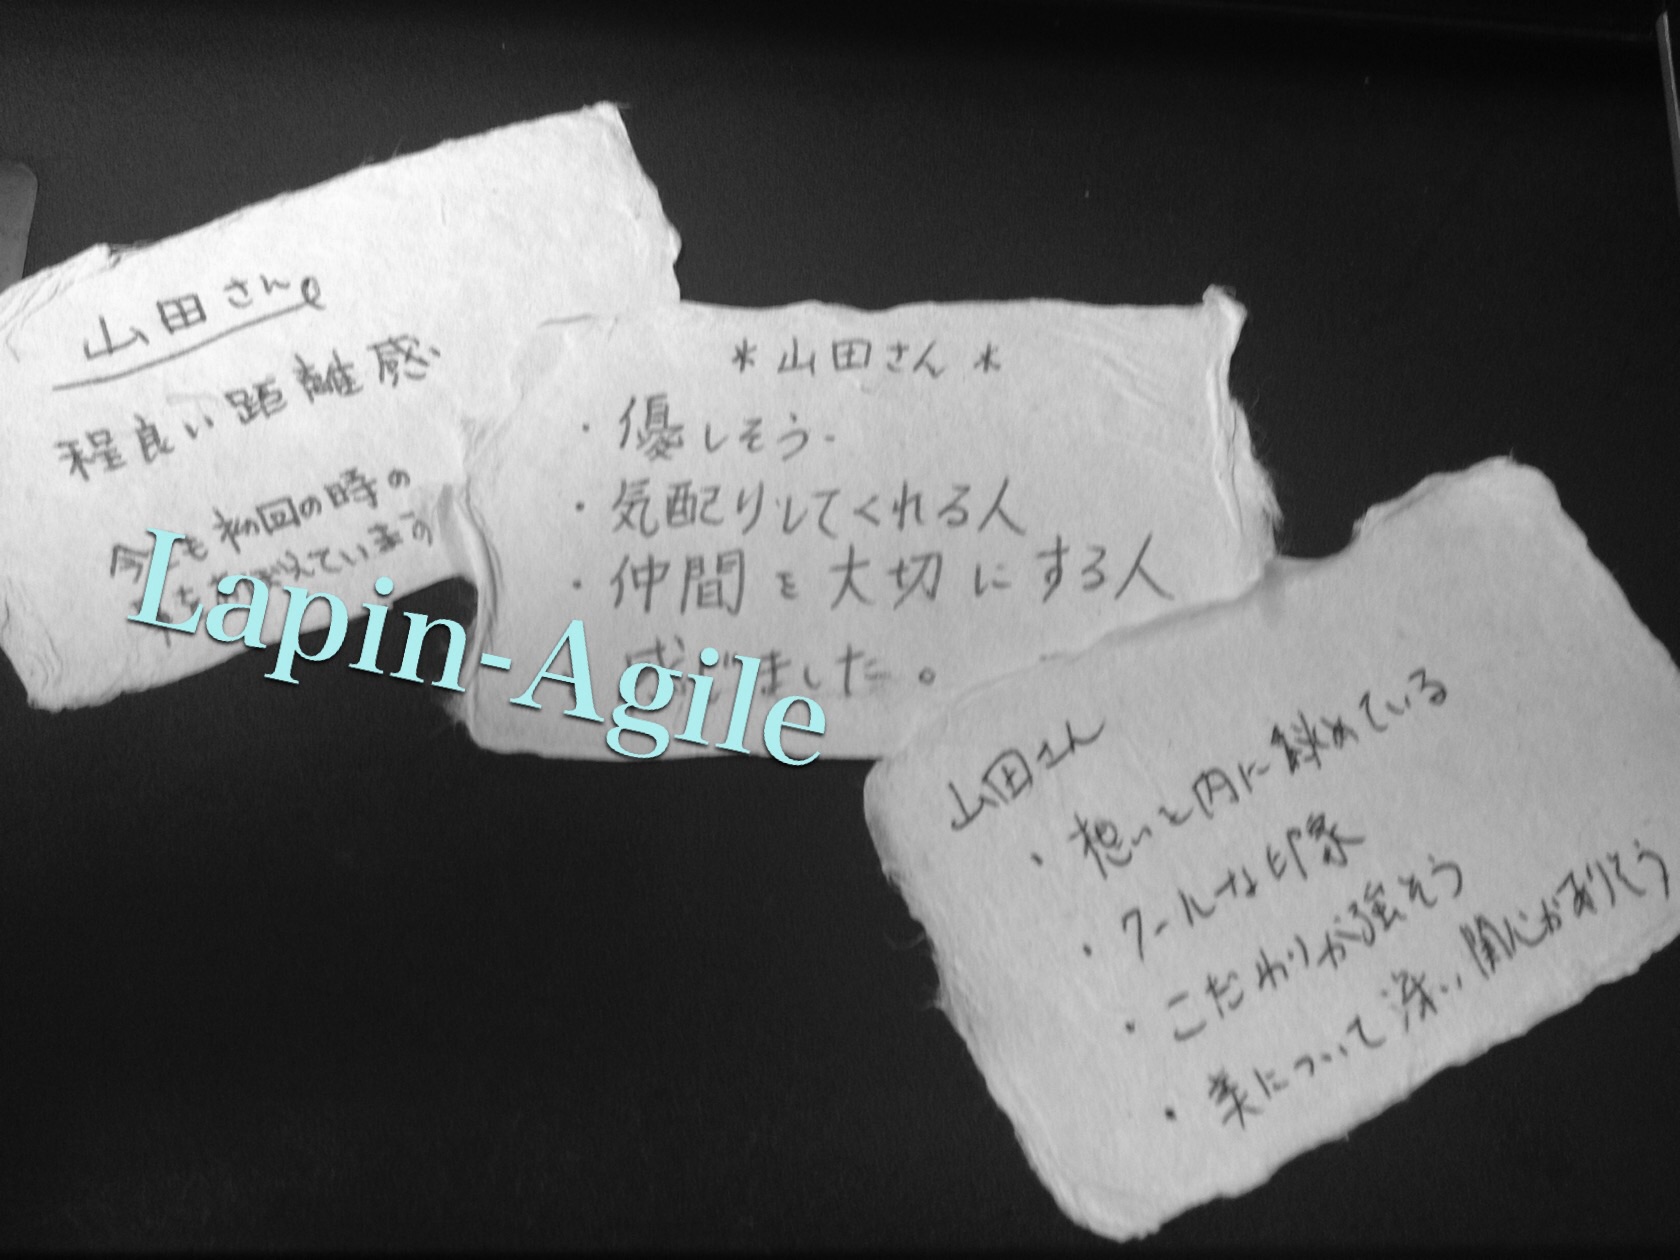 山田さん
程良い距離感
今でも初回の時の
覚えています
*山田さん*
・優しそう.
・気配りしてくれる人
・仲間を大切にする人
感じました。
山田さん
・想いを内に秘めている
・クールな印象
・こだわりが強そう
・美について深い関心がありそう
Lapin-Agile